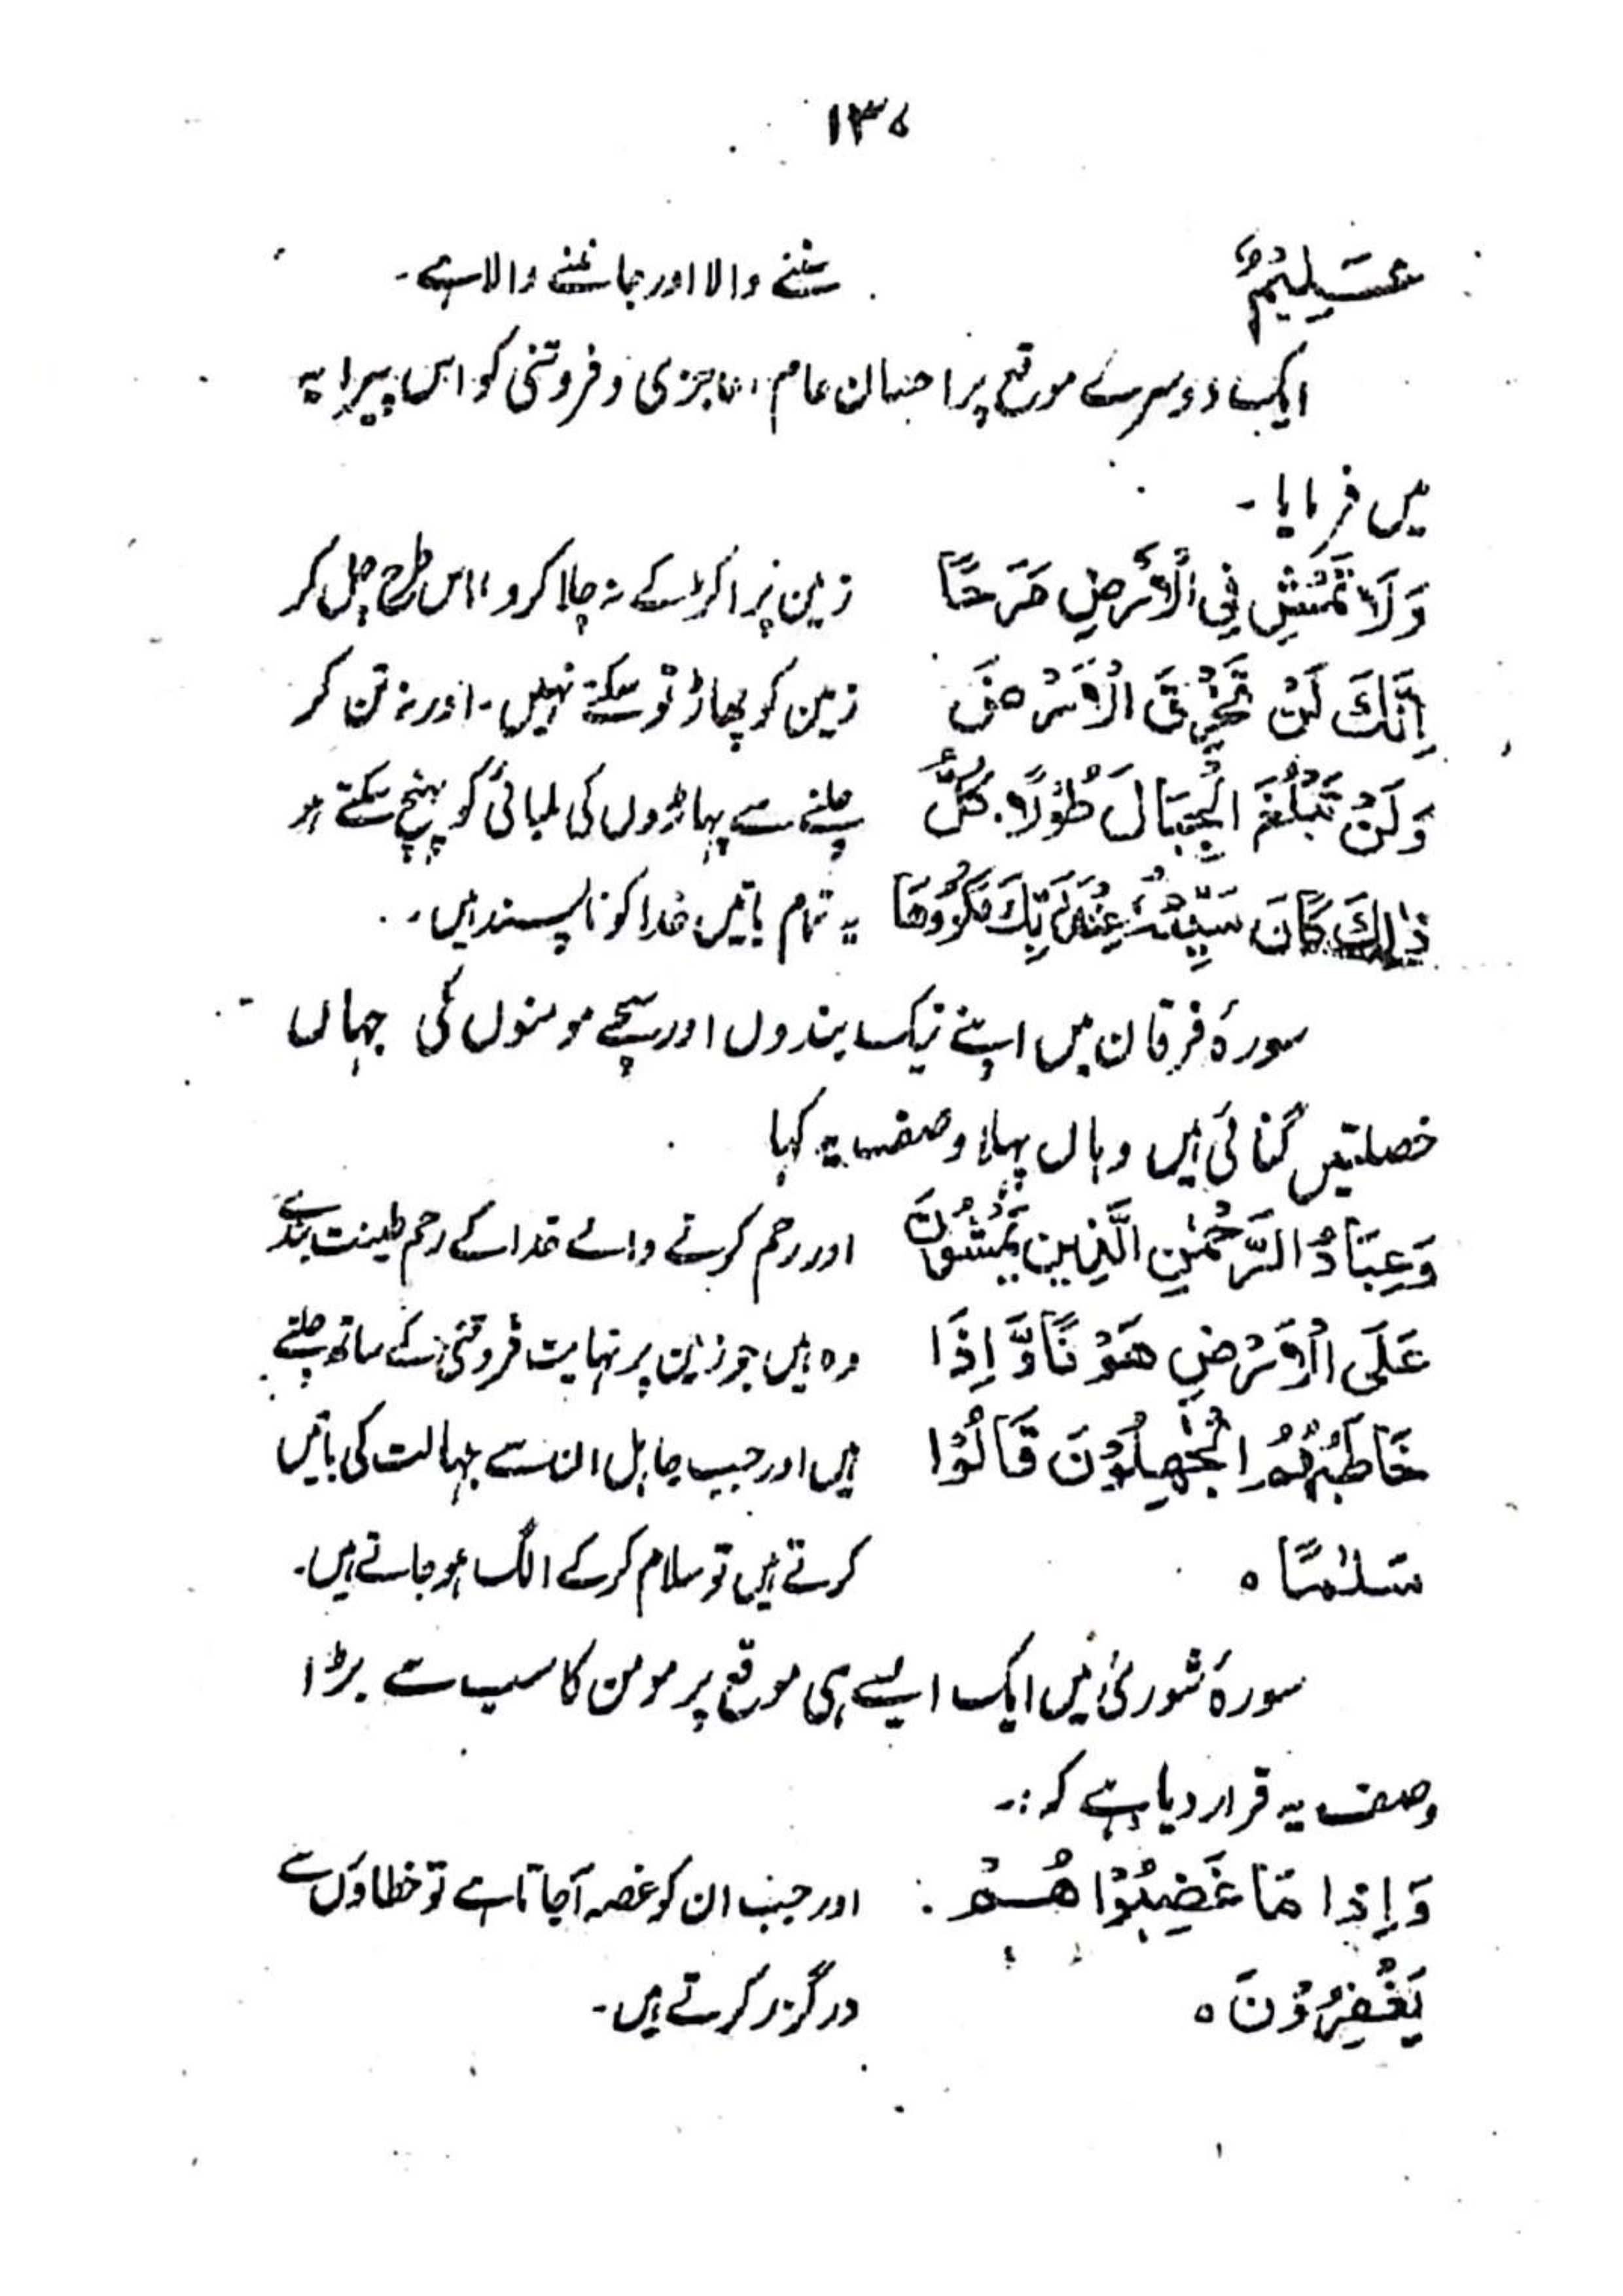 ۱۳۵
عَلِيْمٌ سننے والا اور جاننے والا ہے۔
ایک دوسرے موقع پر احسان عام، عاجزی و فروتنی کو اس پیرایہ
میں فرمایا۔
وَلَا تَمْشِ فِي الْأَرْضِ مَرَحًا زمین پر اکڑ کے نہ چلا کرو، اس طرح چل کر
اِنَّكَ لَنْ تَخْرِقَ الْاَرْضَ زمین کو پھاڑ تو سکتے نہیں۔ اور نہ تن کر
وَلَنْ تَبْلُغَ الْجِبَالَ طُوْلًا۔ كُلُّ چلنے سے پہاڑوں کی لمبائی کو پہنچ سکتے ہو
ذٰلِكَ كَانَ سَيِّئُهٗ عِنْدَ رَبِّكَ مَكْرُوْهًا یہ تمام باتیں خدا کو ناپسند ہیں۔
سورۂ فرقان میں اپنے نیک بندوں اور سچے مومنوں کی جہاں
خصلتیں گنائی ہیں وہاں پہلا وصف یہ کہا
وَعِبَادُ الرَّحْمٰنِ الَّذِيْنَ يَمْشُوْنَ اور رحم کرنے والے خدا کے رحم طینت بندے
عَلَى الْاَرْضِ هَوْنًا وَّاِذَا وہ ہیں جو زمین پر نہایت فروتنی کے ساتھ چلتے
خَاطَبَهُمُ الْجٰهِلُوْنَ قَالُوْا ہیں اور جب جاہل ان سے جہالت کی باتیں
سَلٰمًا ہ کرتے ہیں تو سلام کر کے الگ ہو جاتے ہیں۔
سورۂ شوریٰ میں ایک ایسے ہی موقع پر مومن کا سب سے بڑا
وصف یہ قرار دیا ہے کہ :۔
وَاِذَا مَا غَضِبُوْا هُمْ اور جب ان کو غصہ آجاتا ہے تو خطاؤں سے
يَغْفِرُوْنَ ہ درگزر کرتے ہیں۔